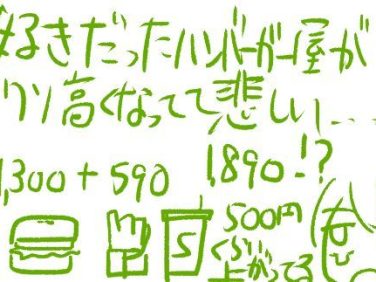 好きだったハンバーガー屋が
クソ高くなってて悲しい...
1,300+590 1,890!?
S
500円
くらい
上がってる